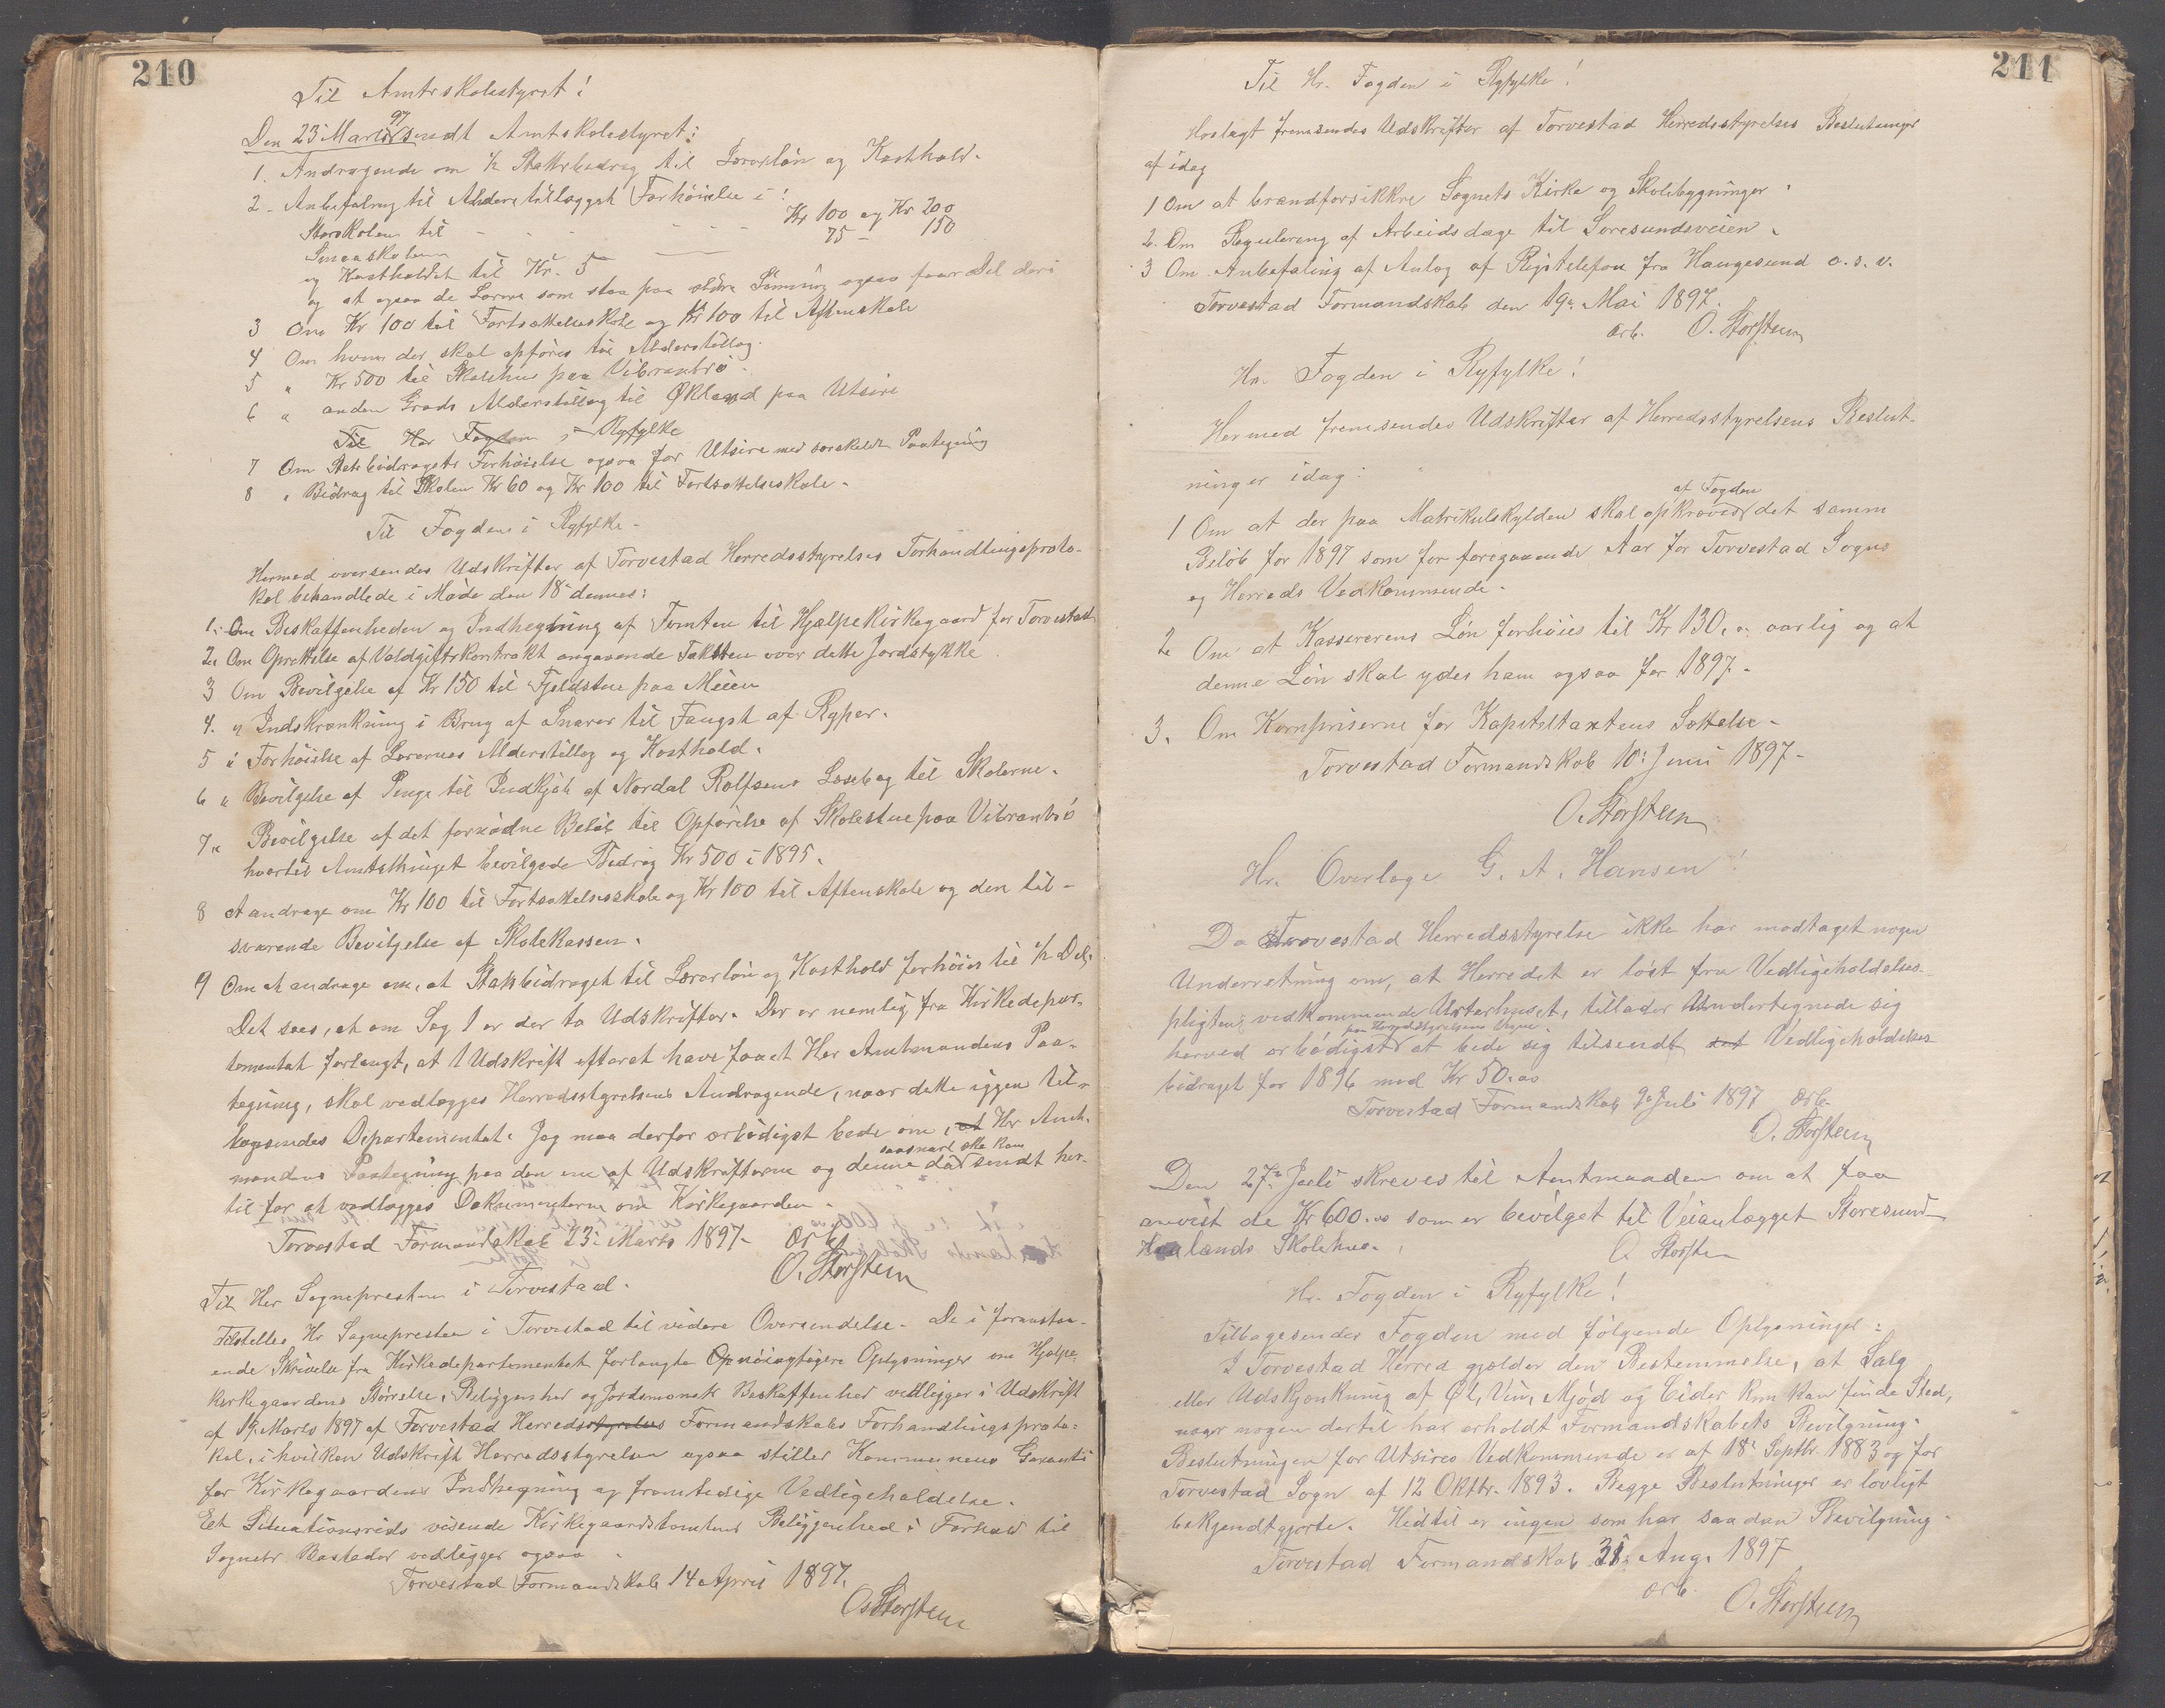 210
Til Amtsskolestyret!
Den 23 Marts 97 sendt Amtskolestyret:
1. Andragende om ½ Statsbidrag til Lærerløn og Kosthold.
2 - Anbefaling til Alderstillæggets Forhøielse i:
Storskolen til - - - - - - Kr 100 og Kr 200
Smaaskolen 75 - 150
og Kostholdet til Kr. 5
og at ogsaa de Lærere som staa paa ældre Lønning ogsaa faar Del deri
3 Om Kr 100 til Fortsættelseskole og Kr 100 til Aftenskole
4 Om hvem der skal opføres til Alderstillæg.
5 " Kr 500 til Skolehus paa Vibranbrø
6 " anden Grads Alderstillæg til Økland paa Utsire
Til Her Fogden i Ryfylke
7 Om Statsbidragets Forhøielse ogsaa for Utsire med særskildt Paategning
8 " Bidrag til Skolen Kr 60 og Kr 100 til Fortsættelseskole.
Til Fogden i Ryfylke -
Hermed oversendes Udskrifter af Torvestad Herredsstyrelses Forhandlingsproto-
kol behandlede i Møde den 18 dennes:
1. Om Beskaffenheden og Indhegning af Tomten til Hjælpekirkegaard for Torvestad
2. Om Oprettelse af Voldgiftskontrakt angaaende Taksten over dette Jordstykke.
3 Om Bevilgelse af Kr 150 til Fjeldstue paa Meien
4. " Indskrænkning i Brug af Snarer til Fangst af Ryper.
5 " Forhøielse af Lærernes Alderstillæg og Kosthold.
6 " Bevilgelse af Penge til Indkjøb af Nordal Rolfsens Læsebog til Skolerne.
7 " Bevilgelse af det fornødne Beløb til Opførelse af Skolestue paa Vibranbrø
hvortil Amtsthinget bevilgede Bidrag Kr 500 i 1895.
8 At andrage om Kr 100 til Fortsættelsesskole og Kr 100 til Aftenskole og den til-
svarende Bevilgelse af Skolekassen.
9 Om at andrage om, at Statsbidraget til Lærerløn og Kosthold forhøies til ½ Del.
Det sees, at om Sag 1 er der to Udskrifter. Der er nemlig fra Kirkedepar-
tementet forlangt, at 1 Udskrift efterat have faaet Her Amtmandens Paa-
tegning, skal vedlægges Herredsstyrelsens Andragende, naar dette iggen til-
bagesendes Departementet. Jeg maa derfor ærbødigst bede om, at Hr Amt-
mandens Paategning paa den ene af Udskrifterne og denne da saasnart ske kan sendt her-
til for at vedlægges Dokumenterne om Kirkegaarden.
Torvestad Formandskab 23: Marts 1897- Ærb.
O. Storsteen
Til Her Sognepresten i Torvestad.
Tilstilles Hr Sognepresten i Torvestad til videre Oversendelse. De i foranstaa-
ende Skrivelse fra Kirkedepartementet forlangte nøiagtigere Oplysninger om Hjælpe-
kirkegaardens Størrelse, Beliggenhed og Jordsmonets Beskaffenhed vedligger i Udskrift
af 19 Marts 1897 af Torvestad Herredsstyrelses Formandskabs Forhandlingsproto-
kol, i hvilken Udskrift Herredsstyrelsen ogsaa stiller Kommunens Garanti
for Kirkegaardens Indhegning og fremtidige Vedligeholdelse.
Et Situationsrids visende Kirkegaardstomtens Beliggenhed i Forhold til
Sognets Bosteder vedligger ogsaa.
Torvestad Formandskab 14 April 1897.
O. Storsteen
211
Til Hr. Fogden i Ryfylke!
Hoslagt fremsendes Udskrifter af Torvestad Herredsstyrelses Beslutninger
af idag
1 Om at brandforsikkre Sognets Kirke og Skolebygninger.
2. Om Regulering af Arbeidsdage til Storesundsveien.
3 Om Anbefaling af Anlæg af Rigstelefon fra Haugesund o. s. v.
Torvestad Formandskab den 19. Mai 1897.
Ærb. O. Storsteen
Hr. Fogden i Ryfylke!
Hermed fremsendes Udskrifter af Herredsstyrelsens Beslut-
ninger idag:
1 Om at der paa Matrikulskylden skal opkræves af Fogden det samme
Beløb for 1897 som for foregaaende Aar for Torvestad Sogns
og Herreds Vedkommende.
2 Om at Kassererens Løn forhøies til Kr 130,00 aarlig og at
denne Løn skal ydes ham ogsaa for 1897.-
3. Om Kornpriserne for Kapiteltaxtens Sættelse -
Torvestad Formandskab 10: Juni 1897-
O. Storsteen
Hr. Overlæge G. A. Hansen!
Da Torvestad Herredsstyrelse ikke har modtaget nogen
Underretning om, at Herredet er løst fra Vedligeholdelses-
pligten vedkommende , tillader Undertegnede sig
herved ærbødigst paa Herredsstyrelsens Vegne at bede sig tilsendt det Vedligeholdelses-
bidraget for 1896 med Kr 50.00
Torvestad Formandskab 9 Juli 1897 Ærb.
O. Storsteen
Den 27. Juli skreves til Amtmanden om at faa
anvist de Kr 600.00 som er bevilget til Veianlægget Storesund-
Haalands Skolehus. O. Storsteen
Hr. Fogden i Ryfylke!
Tilbagesendes Fogden med følgende Oplysninger:
I Torvestad Herred gjælder den Bestemmelse, at Salg
eller Udskjænkning af Øl, Vin, Mjød og Cider kun kan finde Sted,
naar nogen dertil har erholdt Formandskabets Bevilgning.
Beslutningen for Utsires Vedkommende er af 18. Septbr. 1883 og for
Torvestad Sogn af 12 Oktbr. 1893. Begge Beslutninger er lovligt
bekjendtgjorte. Hidtil er ingen som har saadan Bevilgning.
Torvestad Formandskab 31. Aug. 1897
Ærb. O. Storsteen